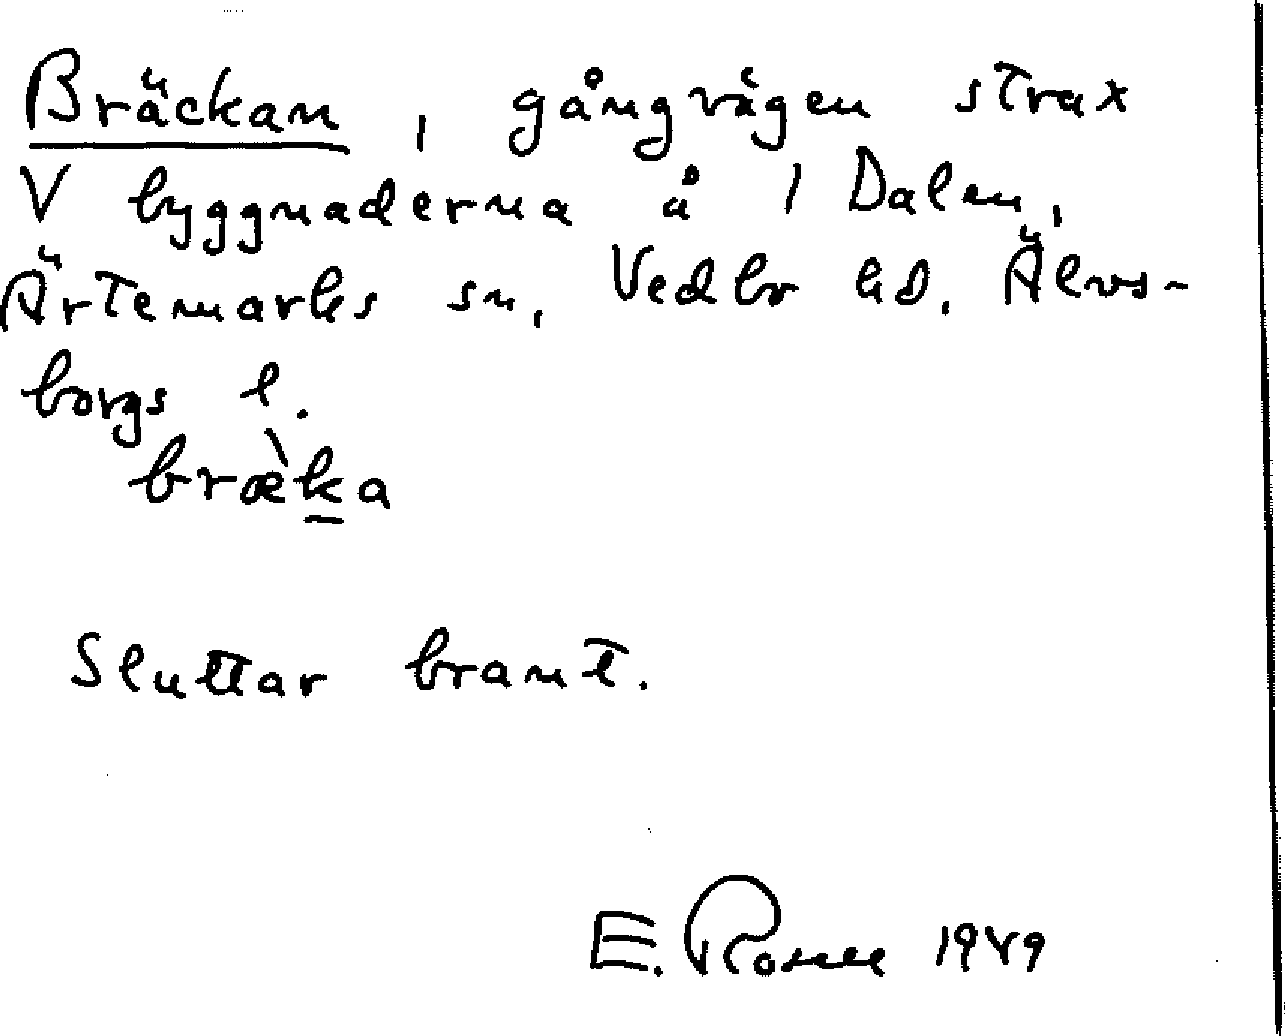 Bräckan, gångvägen strax
V byggnaderna å 1 Dalen,
Ärtemarks sn, Vedbo hd, Älvs-
borgs l.
bræ̀ka
Sluttar brant.
E. Rosell 1949